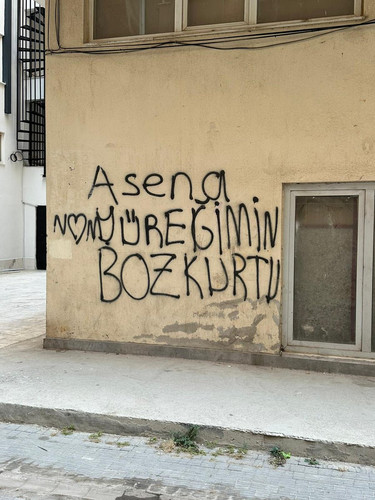 Asena
N♡M YÜREĞİMİN
BOZKURTU